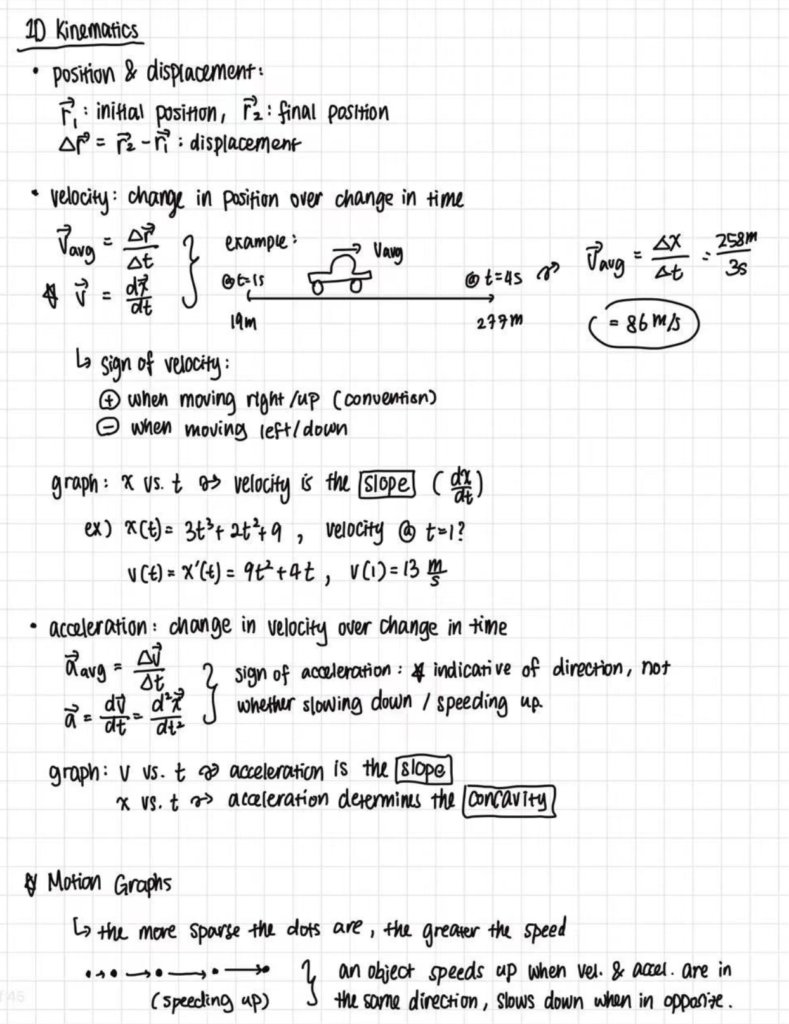 1D Kinematics
• position & displacement:
r⃗₁: initial position, r⃗₂: final position
Δr⃗ = r⃗₂ - r⃗₁ : displacement
• velocity: change in position over change in time
v⃗avg = Δr⃗/Δt } example: Vavg v⃗avg = Δx/Δt = 258m/3s
v⃗ = dx⃗/dt @t=1s @t=4s
19m 277m = 86 m/s
↳ sign of velocity:
⊕ when moving right/up (convention)
⊖ when moving left/down
graph: x vs. t → velocity is the slope (dx/dt)
ex) x(t)= 3t³+2t²+9 , velocity @ t=1?
v(t)= x'(t)= 9t²+4t , v(1)=13 m/s
• acceleration: change in velocity over change in time
a⃗avg = Δv⃗/Δt } sign of acceleration: indicative of direction, not
a⃗ = dv⃗/dt = d²x⃗/dt² whether slowing down / speeding up.
graph: v vs. t → acceleration is the slope
x vs. t → acceleration determines the concavity
Motion Graphs
↳ the more sparse the dots are, the greater the speed
•→•→•→•→• } an object speeds up when vel. & accel. are in
(speeding up) the same direction, slows down when in opposite.